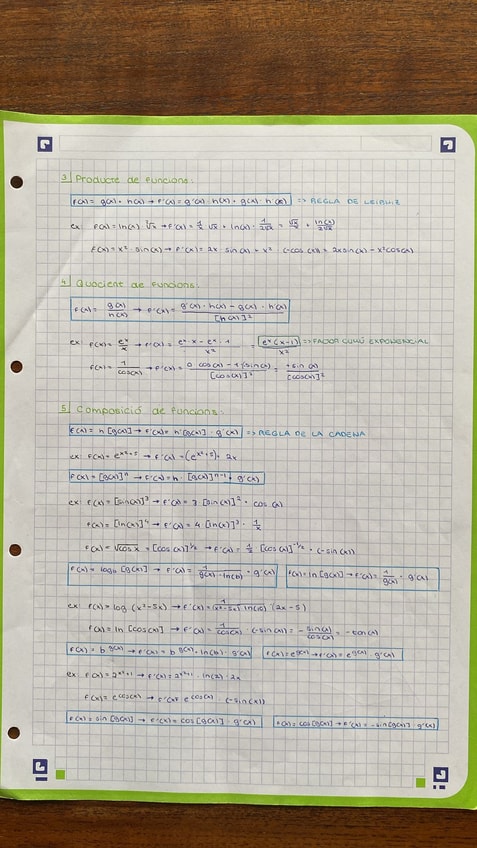 3 Producte de funcions:
f(x) = g(x) · h(x) → f'(x) = g'(x) · h(x) + g(x) · h'(x) => REGLA DE LEIBNIZ
ex: f(x) = ln(x) · √x → f'(x) = 1/x · √x + ln(x) · 1/2√x = √x/x + ln(x)/2√x
f(x) = x² · sin(x) → f'(x) = 2x · sin(x) + x² · (-cos(x)) = 2x sin(x) - x² cos(x)
4 Quocient de funcions:
f(x) = g(x)/h(x) → f'(x) = g'(x) · h(x) - g(x) · h'(x)/[h(x)]²
ex: f(x) = eˣ/x → f'(x) = eˣ · x - eˣ · 1/x² = eˣ(x-1)/x² => FACTOR COMÚ EXPONENCIAL
f(x) = 1/cos(x) → f'(x) = 0 · cos(x) - 1 · (-sin(x))/[cos(x)]² = +sin(x)/[cos(x)]²
5 Composició de funcions:
f(x) = h[g(x)] → f'(x) = h'[g(x)] · g'(x) => REGLA DE LA CADENA
ex: f(x) = e^(x²+5) → f'(x) = (e^(x²+5)) · 2x
f(x) = [g(x)]ⁿ → f'(x) = n · [g(x)]ⁿ⁻¹ · g'(x)
ex: f(x) = [sin(x)]³ → f'(x) = 3 [sin(x)]² · cos(x)
f(x) = [ln(x)]⁴ → f'(x) = 4 [ln(x)]³ · 1/x
f(x) = √cos x = [cos(x)]^1/2 → f'(x) = 1/2 [cos(x)]^-1/2 · (-sin(x))
f(x) = log_b [g(x)] → f'(x) = 1/g(x) · ln(b) · g'(x) f(x) = ln[g(x)] → f'(x) = 1/g(x) · g'(x)
ex: f(x) = log (x²-5x) → f'(x) = 1/(x²-5x) ln(10) · (2x-5)
f(x) = ln [cos(x)] → f'(x) = 1/cos(x) · (-sin(x)) = -sin(x)/cos(x) = -tan(x)
f(x) = b^g(x) → f'(x) = b^g(x) · ln(b) · g'(x) f(x) = e^g(x) → f'(x) = e^g(x) · g'(x)
ex: f(x) = 2^(x²+1) → f'(x) = 2^(x²+1) · ln(2) · 2x
f(x) = e^cos(x) → f'(x) = e^cos(x) · (-sin(x))
f(x) = sin [g(x)] → f'(x) = cos[g(x)] · g'(x) f(x) = cos[g(x)] → f'(x) = -sin[g(x)] · g'(x)